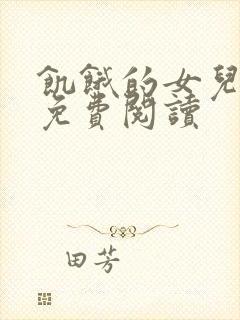 飢餓的女兒
免費閱讀
田芳